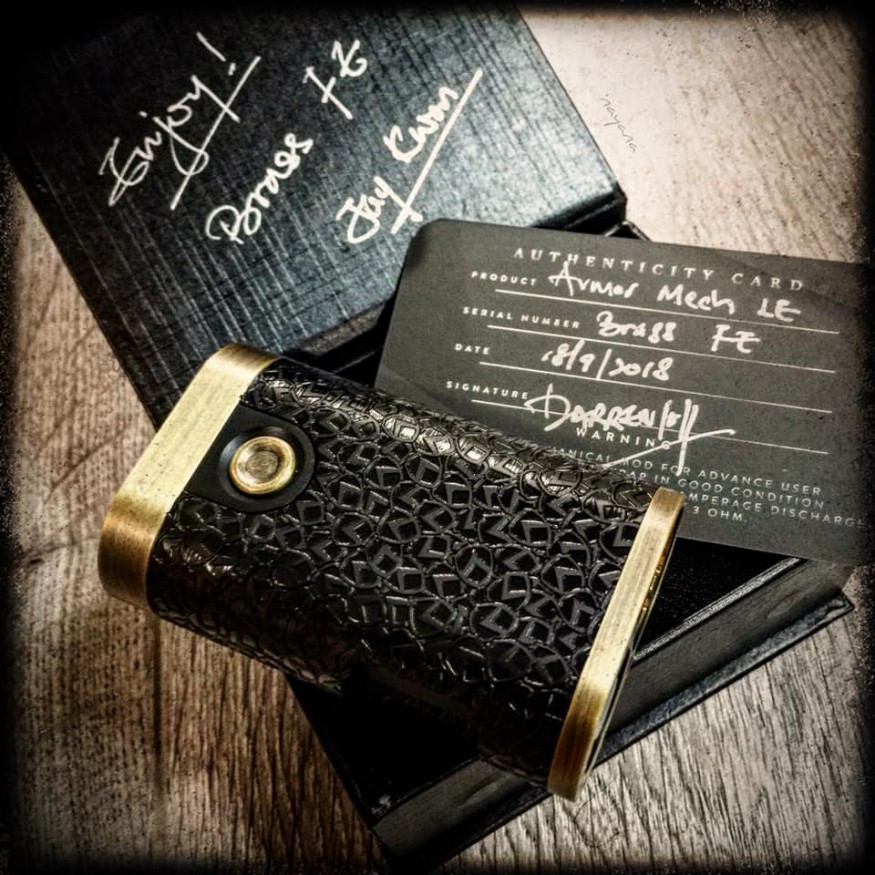 Enjoy!
Brass FZ
Jay Kwon
AUTHENTICITY CARD
PRODUCT Armor Mech LE
SERIAL NUMBER Brass FZ
DATE 18/9/2018
SIGNATURE
WARNING
MOD FOR ADVANCE USER
IN GOOD CONDITION
DISCHARGE
3 OHM.